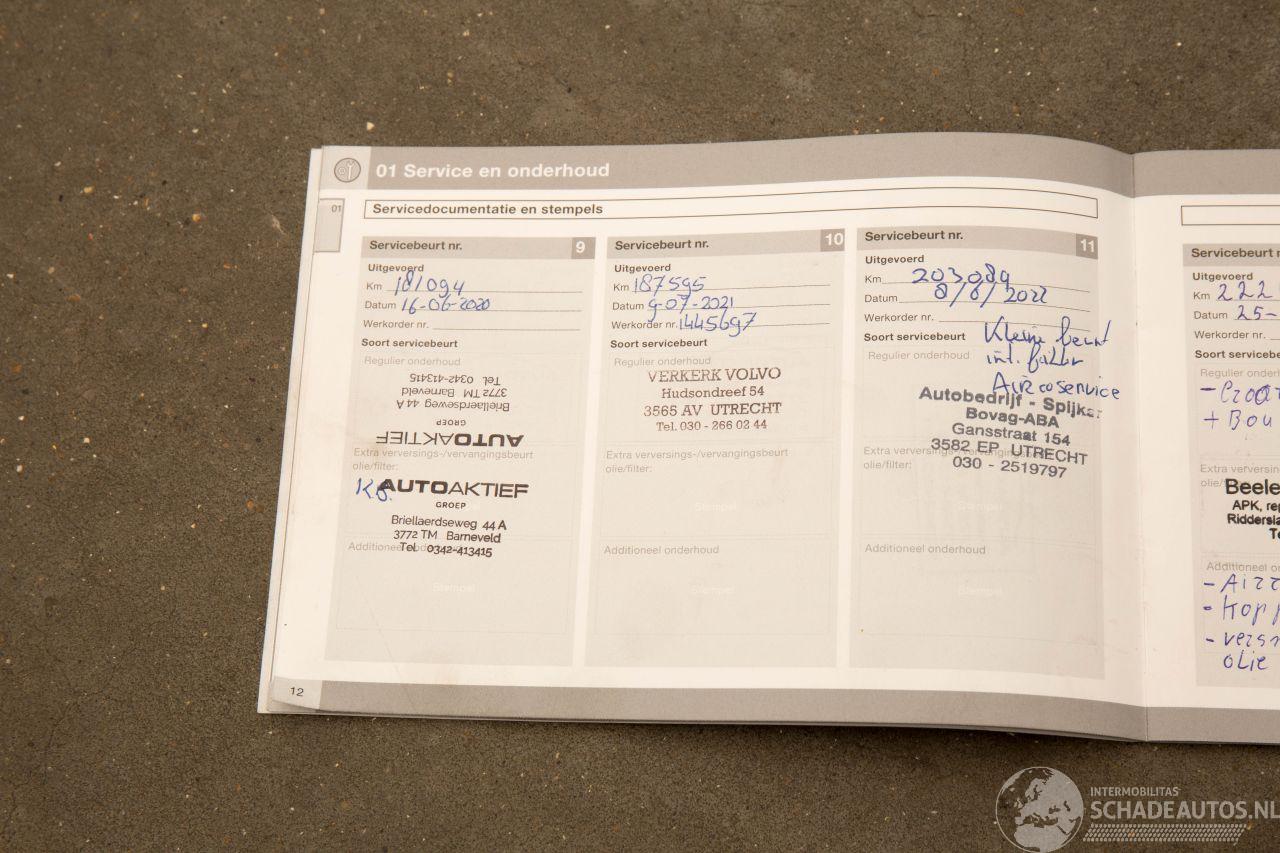 01 Service en onderhoud
01
Servicedocumentatie en stempels
Servicebeurt nr. 9
Uitgevoerd
Km 181094
Datum 16-06-2020
Werkorder nr.
Soort servicebeurt
Regulier onderhoud
Tel. 0342-413415
3772 TM Barneveld
Briellaerdseweg 44 A
GROEP
AUTOAKTIEF
Extra verversings-/vervangingsbeurt
olie/filter:
KB.
AUTOAKTIEF
GROEP
Briellaerdseweg 44 A
3772 TM Barneveld
Additioneel
Tel. 0342-413415
Stempel
Servicebeurt nr. 10
Uitgevoerd
Km 187595
Datum 9-07-2021
Werkorder nr. 1445697
Soort servicebeurt
Regulier onderhoud
VERKERK VOLVO
Hudsondreef 54
3565 AV UTRECHT
Tel. 030 - 266 02 44
Extra verversings-/vervangingsbeurt
olie/filter:
Stempel
Additioneel onderhoud
Stempel
Servicebeurt nr. 11
Uitgevoerd
Km 203089
Datum 8/8/2022
Werkorder nr.
Soort servicebeurt
Kleine beurt
Regulier onderhoud
int. filter
Aircoservice
Autobedrijf - Spijker
Bovag-ABA
Gansstraat 154
3582 EP UTRECHT
Extra verversings-/vervangingsbeurt
olie/filter:
030 - 2519797
Stempel
Additioneel onderhoud
Stempel
Servicebeurt
Uitgevoerd
Km 222
Datum 25-
Werkorder nr.
Soort servicebe
Regulier onderh
+ Bou
Extra verversin
olie/f
Beele
APK, re
Riddersla
Te
Additioneel o
- Airc
- Kopp
- vers
olie
12
INTERMOBILITAS
SCHADEAUTOS.NL